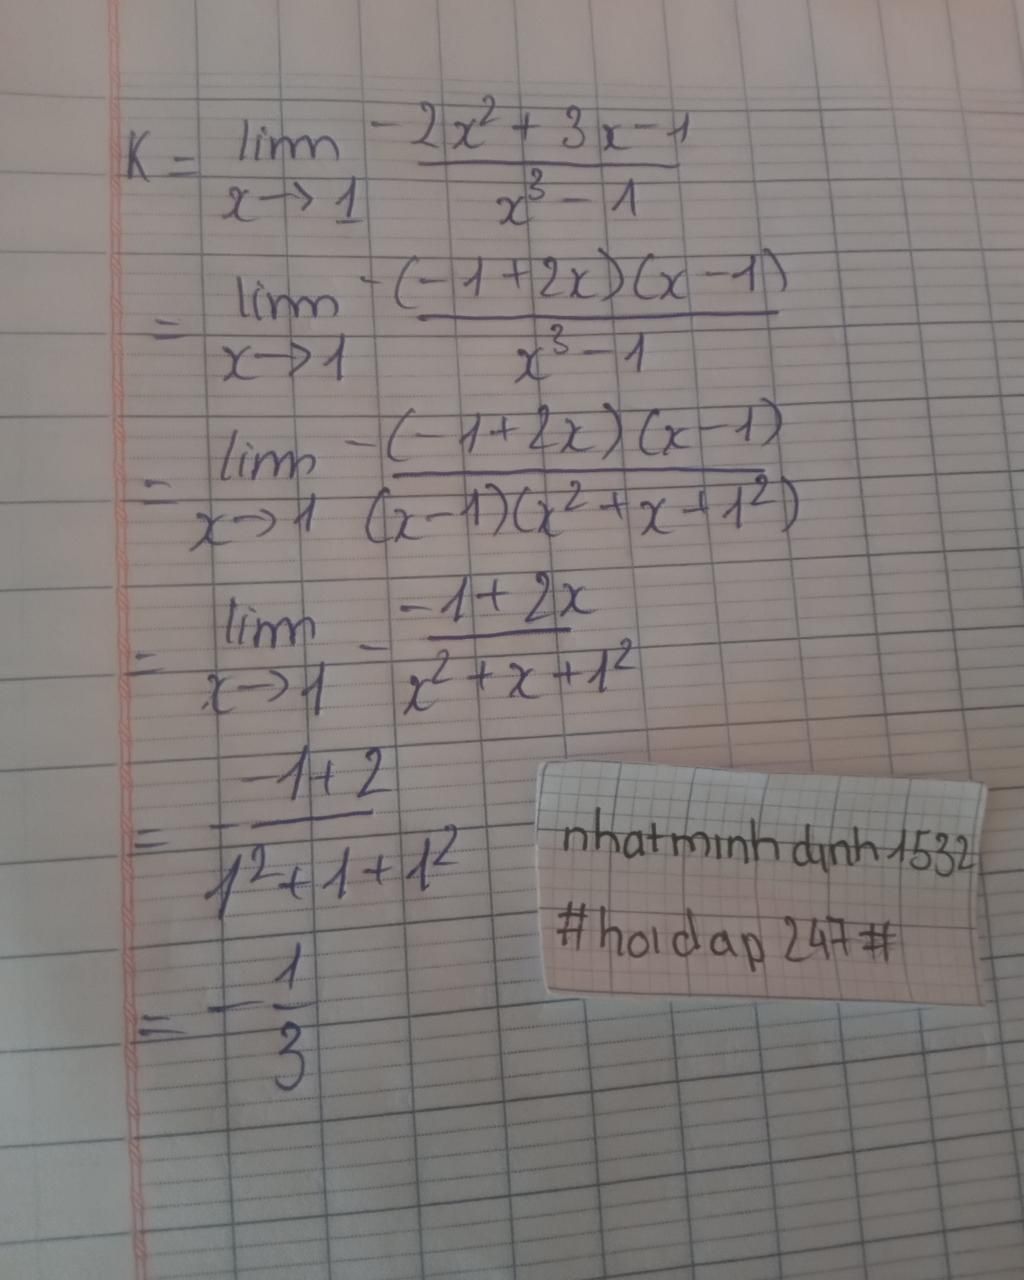 K = lim x→1 -2x² + 3x - 1 / x³ - 1
= lim x→1 -(-1+2x)(x-1) / x³ - 1
= lim x→1 -(-1+2x)(x-1) / (x-1)(x²+x+1²)
= lim x→1 - -1+2x / x²+x+1²
= - -1+2 / 1²+1+1²
= - 1 / 3
nhatminhdinh1532
#hoidap247#